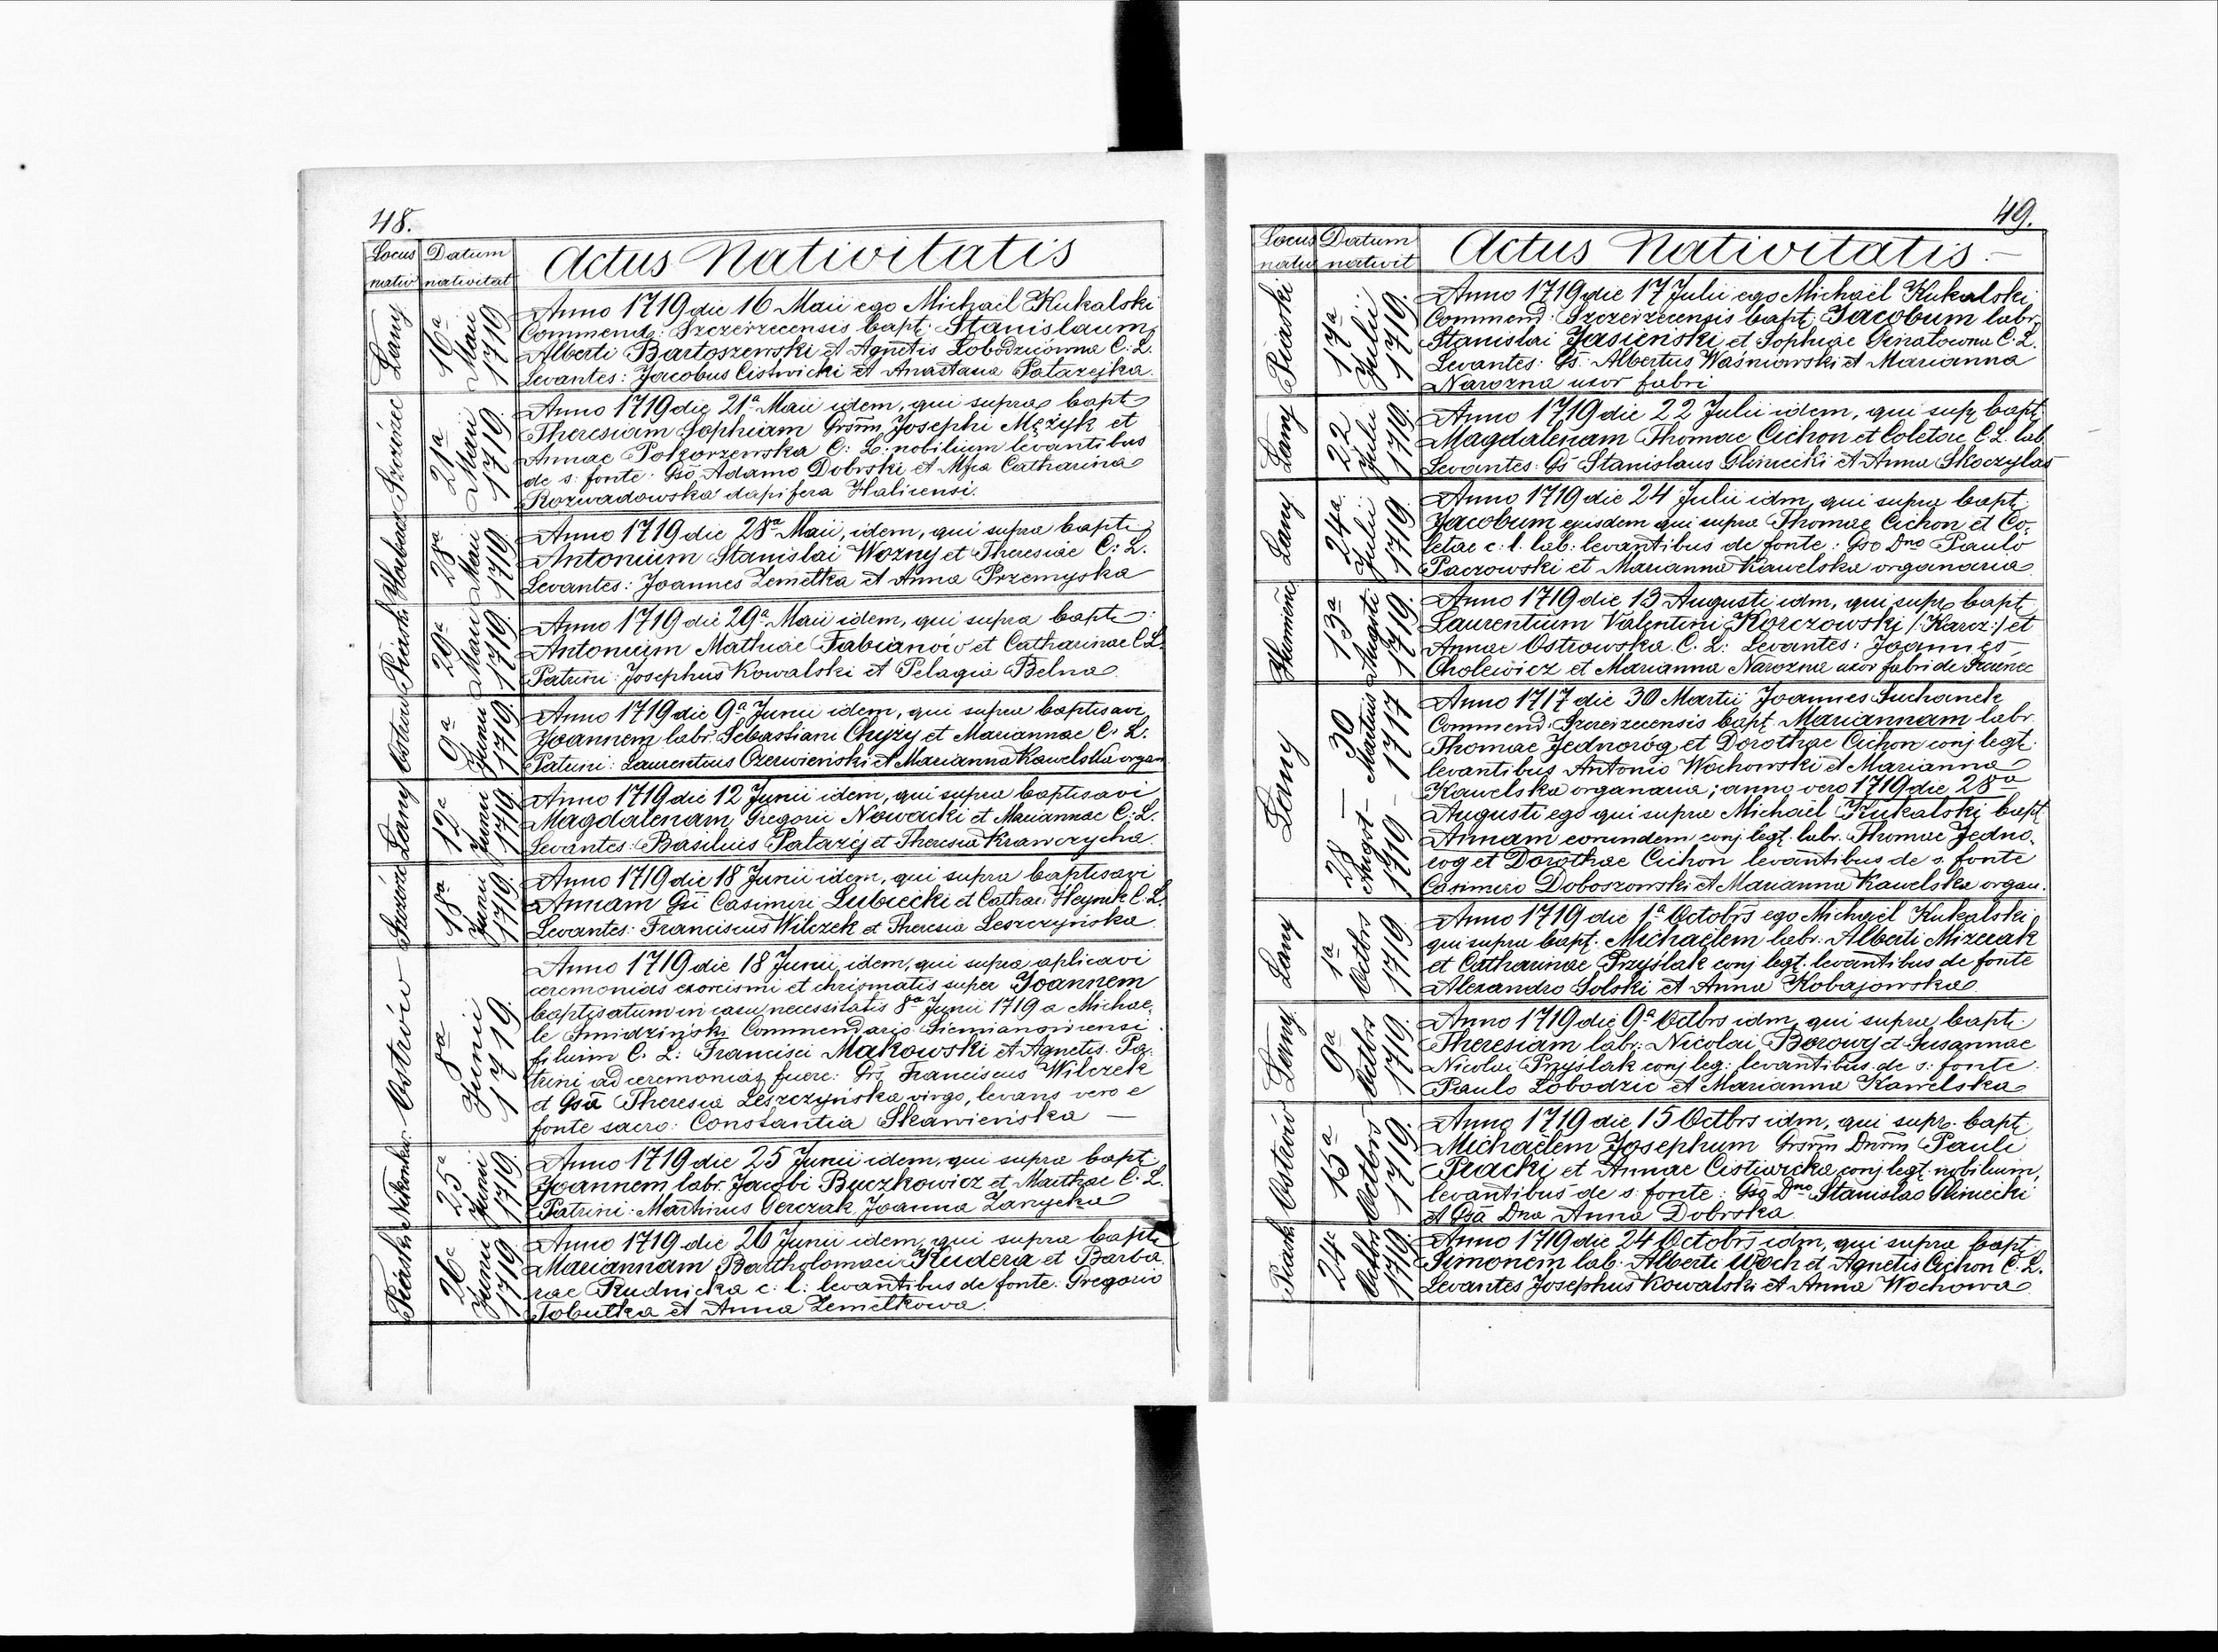 48.
Locus nativ
Datum nativitat
Actus Nativitatis
Lany
16a Maii 1719
Anno 1719 die 16 Maii ego Michaël Kukalski
Commend: Szczerzecensis bapt: Stanislaum
Alberti Bartoszewski et Agnetis Łobodzieówna C: L.
Levantes: Jacobus Cistwicki et Anastasia Patazyjka.
21a Maii 1719.
Anno 1719 die 21a Maii idem, qui supra bapt
Theresiam Sophiam Grsm Josephi Mężyk et
Annae Pokorzewska C: L: nobilium levantibus
de s: fonte: Gsō Adamo Dobrski et Mfca Catharina
Rozwadowska dapifera Halicensi.
28a Maii 1719
Anno 1719 die 28a Maii, idem, qui supra bapti
Antonium Stanislai Wozny et Theresiae C: L.
Levantes: Joannes Zemełka et Anna Przemyska
Piaski
29a Maii 1719
Anno 1719 die 29a Maii idem, qui supra bapt:
Antonium Mathiae Fabianowic et Catharinae C L.
Patrini: Josephus Kowalski et Pelagia Belna.
Ostrow
9a Junii 1719.
Anno 1719 die 9a Junii idem, qui supra baptisavi
Joannem labr. Sebastiani Chyży et Mariannae C: L:
Patrini: Laurentius Czerwieński et Marianna Kawelska organ
Lany
12a Junii 1719.
Anno 1719 die 12 Junii idem, qui supra baptisavi
Magdalenam Gregorii Nowacki et Mariannae C: L.
Levantes: Basilius Patazij et Theresia Krawczycha.
18a Junii 1719.
Anno 1719 die 18 Junii idem, qui supra baptisavi
Annam Gsi Casimiri Lubiecki et Cathar: Heynik C. L.
Levantes: Franciscus Wilczek et Theresia Leszczyńska.
Ostrów
8a Junii 1719.
Anno 1719 die 18 Junii idem, qui supra aplicavi
ceremonias exorcismi et chrismatis super Joannem
baptisatum in casu necessitatis 8a Junii 1719 a Michae-
le Smidziński Commendario Siemianowicensi
filium C. L: Francisci Makowski et Agnetis. Pa-
trini ad ceremonias fuere: Grs Franciscus Wilczek
et Gsa Theresia Leszczyńska virgo, levans vero e
fonte sacro: Constantia Skawieńska —
Nikonko.
25a Junii 1719.
Anno 1719 die 25 Junii idem, qui supra bapt
Joannem labr. Jacobi Buczkowicz et Marthae C. L.
Patrini: Martinus Gerczak, Joanna Zanycka
Piaski
26a Junii 1719
Anno 1719 die 26 Junii idem, qui supra bapti
Mariannam Bartholomaei Kudera et Barba
rae Rudnicka c: l: levantibus de fonte: Gregorio
Tobułka et Anna Zemełkowa.
49.
Locus nativ
Datum nativit
Actus Nativitatis. —
Piaski
17a Julii 1719.
Anno 1719 die 17 Julii ego Michaël Kukalski
Commend: Szczerzecensis bapt Jacobum labr.
Stanislai Jasieński et Sophiae Ginatowna C. L.
Levantes: Gs. Albertus Waśniowski et Marianna
Narozna uxor fabri
Lany
22 Julii 1719.
Anno 1719 die 22 Julii idem, qui sup bapt
Magdalenam Thomae Cichon et Coletae C. L. lab.
Levantes: Gs Stanislaus Gliniecki et Anna Skoczylas
Lany
24a Julii 1719.
Anno 1719 die 24 Julii idm, qui supra bapt
Jacobum ejusdem qui supra Thomae Cichon et Co-
letae c: l. lab: levantibus de fonte: Gso Dno Paulo
Paczowski et Marianna Kawelska organaria
13a Augusti 1719.
Anno 1719 die 13 Augusti idm, qui sup bapt
Laurentium Valentini Korczowski /: Karcz :/ et
Annae Ostrowska. C. L: Levantes: Joannes
Cholewicz et Marianna Narozna uxor fabri de
Lany
30 Martius 1717
28 — August — 1719 —
Anno 1717 die 30 Martii Joannes Suchanek
Commend: Szczerzecensis bapt. Mariannam labr.
Thomae Jednoróg et Dorothae Cichon conj legt.
levantibus Antonio Wachowski et Marianna
Kawelska organaria; anno vero 1719 die 28a
Augusti ego qui supra Michaël Kukalski bapt.
Annam eorundem conj legt. labr. Thomae Jedno-
rog et Dorothae Cichon levantibus de s. fonte
Casimiro Doboszowski et Marianna Kawelska organ.
Lany
1a Octbrs 1719
Anno 1719 die 1a Octobrs ego Michaël Kukalski,
qui supra bapt. Michaëlem labr: Alberti Mizerak
et Catharinae Przyślak conj legt. levantibus de fonte
Alexandro Solski et Anna Kobajowska.
Lany
9a Octbrs 1719.
Anno 1719 die 9a Octbrs idm, qui supra bapt.
Theresiam labr: Nicolai Borowy et Susannae
Nicolai Przyślak conj leg: levantibus de s: fonte
Paulo Łobodzic et Marianna Kawelska.
Ostrów
15a Octbrs 1719.
Anno 1719 die 15 Octbrs idm, qui supr. bapt
Michaëlem Josephum Grsrm Dnrm Pauli
Pracki et Annae Cistwicka conj legt. nobilium,
levantibus de s. fonte: Gsō Dno Stanislao Gliniecki
et Gsā Dna Anna Dobrska.
Piaski
24a Octbrs 1719.
Anno 1719 die 24 Octobrs idm, qui supra bapt
Simonem lab: Alberti Woch et Agnetis Cichon C. L.
Levantes Josephus Kowalski et Anna Wochowa